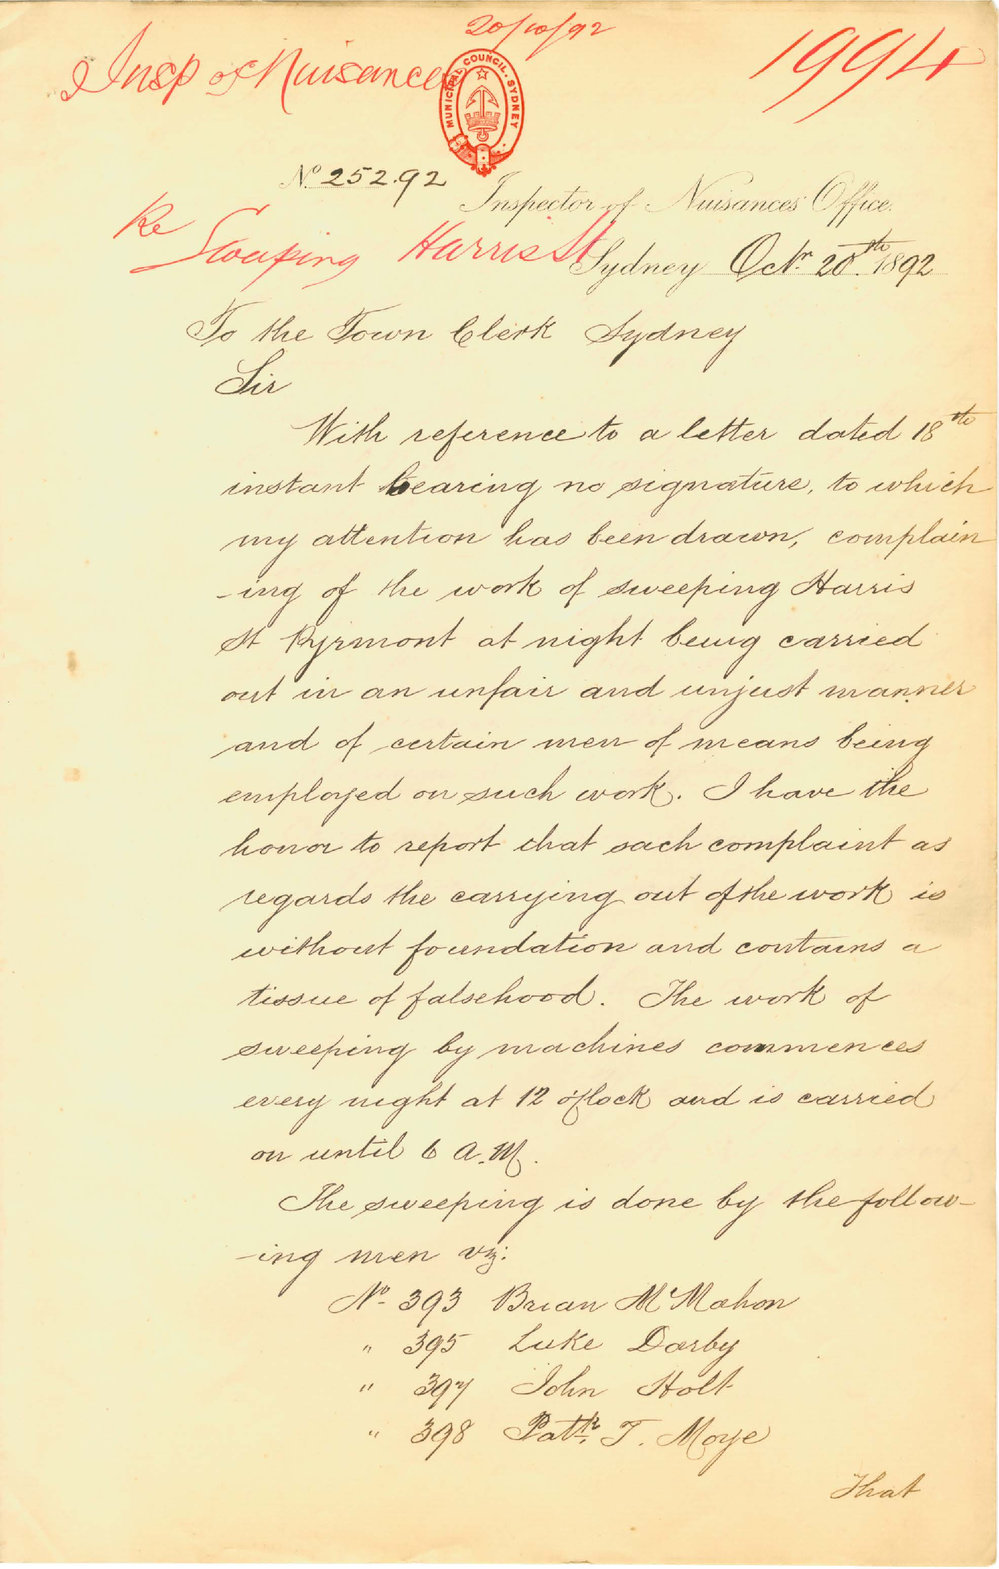 20/10/92
Insp of Nuisances
1994
MUNICIPAL COUNCIL. SYDNEY
No 252.92
Inspector of Nuisances Office.
Re Sweeping Harris St
Sydney Octr. 20th. 1892
To the Town Clerk Sydney
Sir
With reference to a letter dated 18th
instant bearing no signature, to which
my attention has been drawn, complain
-ing of the work of sweeping Harris
St Pyrmont at night being carried
out in an unfair and unjust manner
and of certain men of means being
employed on such work. I have the
honor to report that such complaint as
regards the carrying out of the work is
without foundation and contains a
tissue of falsehood. The work of
sweeping by machines commences
every night at 12 o'clock and is carried
on until 6 A.M.
The sweeping is done by the follow-
-ing men viz:
No. 393 Brian McMahon
" 395 Luke Darby
" 397 John Holt
" 398 Patk. T. Moye
That